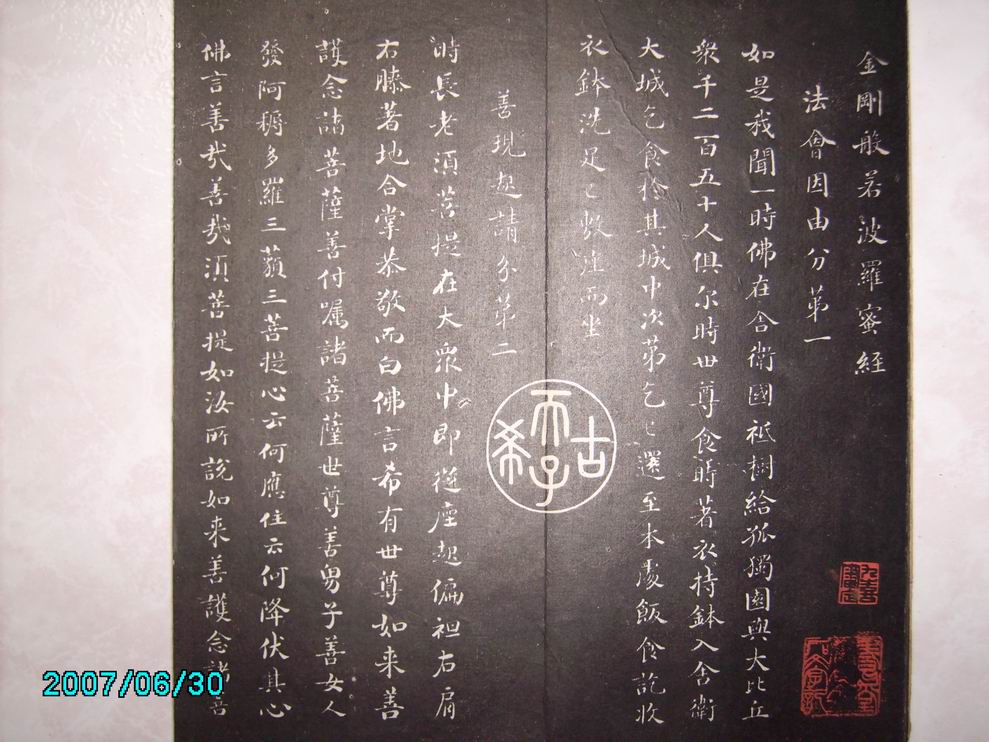 金剛般若波羅蜜經
法會因由分第一
如是我聞一時佛在舍衛國祇樹給孤獨園與大比丘
衆千二百五十人俱尔時世尊食時著衣持鉢入舍衛
大城乞食於其城中次第乞已還至本處飯食訖收
衣鉢洗足已敷座而坐
善現起請分第二
時長老須菩提在大衆中即從座起偏袒右肩
右膝著地合掌恭敬而白佛言希有世尊如来善
護念諸菩薩善付嘱諸菩薩世尊善男子善女人
發阿耨多羅三藐三菩提心云何應住云何降伏其心
佛言善哉善哉須菩提如汝所說如来善護念諸菩
古希天子
2007/06/30